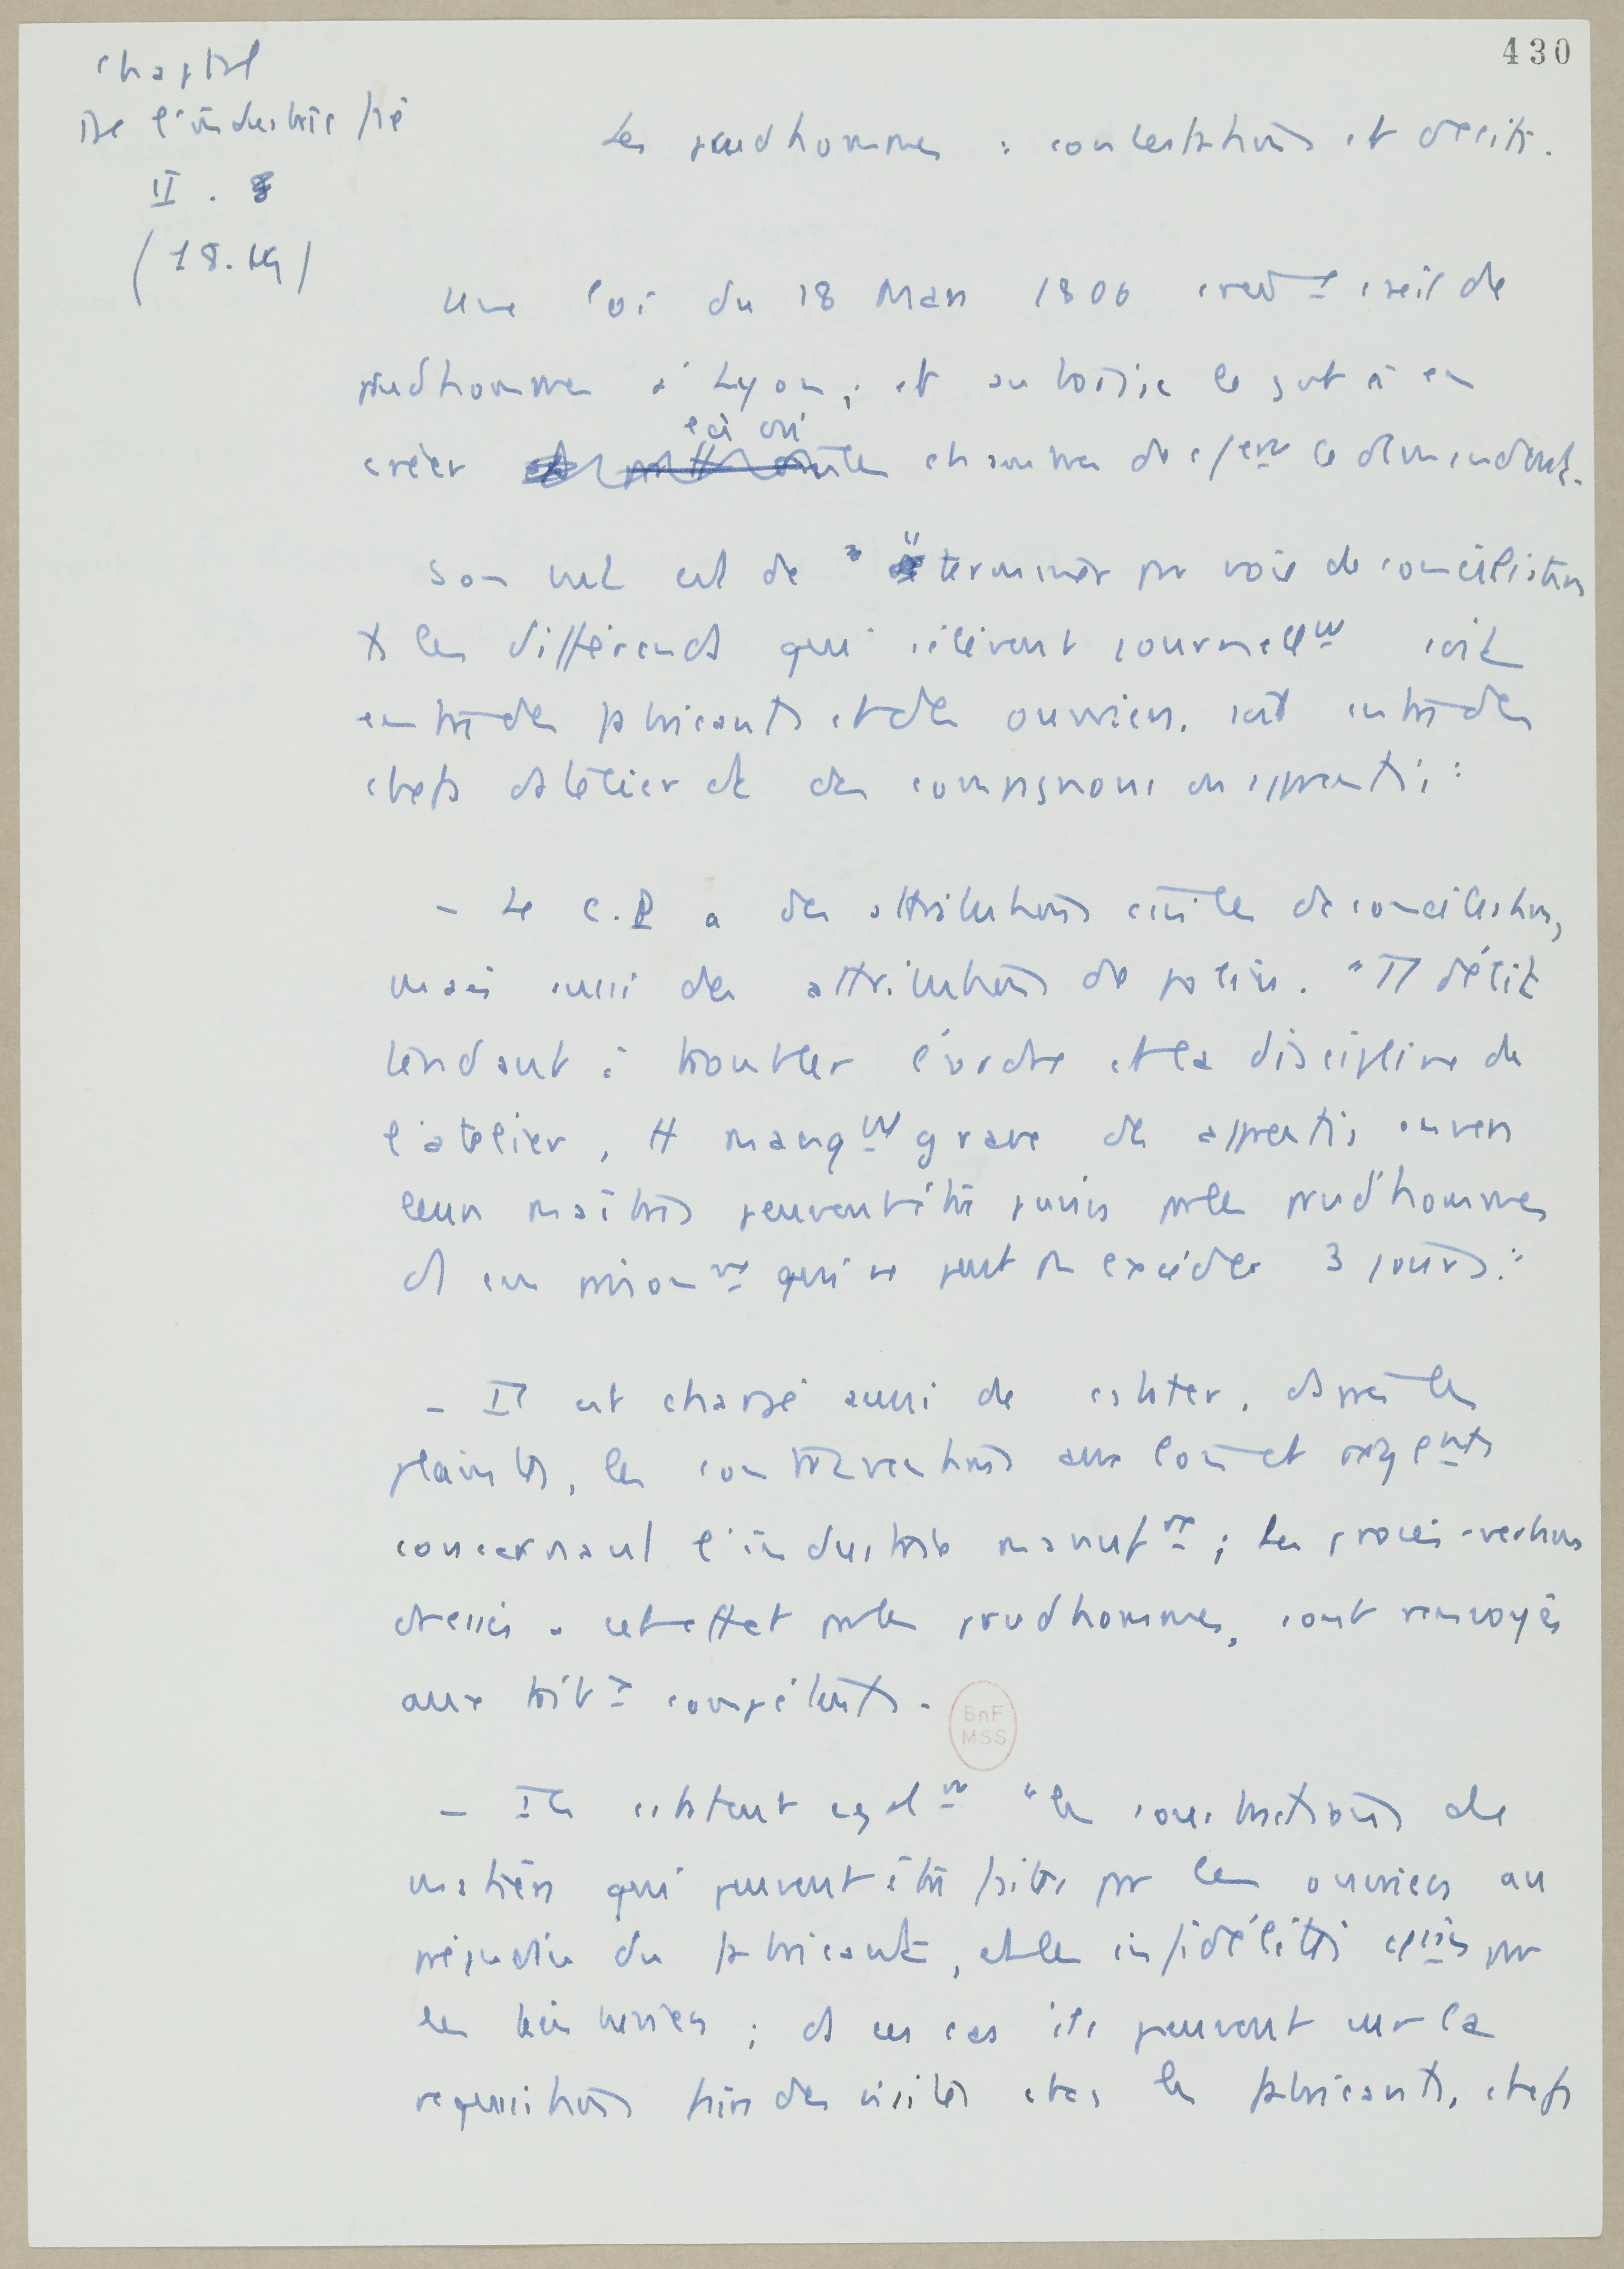 430
Chaptal
De l'industrie fse
II.
(1819)
Les prudhommes : contestations et délits.
Une loi du 18 Mars 1806 créa un cseil de
prudhommes à Lyon ; et autorise le gvt à en
créer là où les chambres de cerce le demandent.
Son but est de "terminer par voie de conciliation
ts les différends qui s'élèvent journellmt soit
entre des fabricants et des ouvriers, soit entre des
chefs d'atelier et des compagnons ou apprentis"
- Le C.P a des attributions civiles de conciliation,
mais aussi des attributions de police. "Tt délit
tendant à troubler l'ordre et la discipline de
l'atelier, tt manqmt grave des apprentis envers
leurs maîtres peuvent être punis par les prud'hommes
d'un emprisonmt qui ne peut pas excéder 3 jours."
- Il est chargé aussi de cstater, d'après les
plaintes, les contraventions aux lois et règlemts
concernant l'industrie manufre ; les procès-verbaux
dressés à cet effet par les prudhommes, sont renvoyés
aux tribx compétents.
- Ils cstatent egalmt "les soustractions de
matières qui peuvent être faites par les ouvriers au
préjudice du fabricant, et les infidélités cises par
les teinturiers ; ds ces cas ils peuvent sur la
requisition faire des visites chez les fabricants, chefs
BnF
MSS